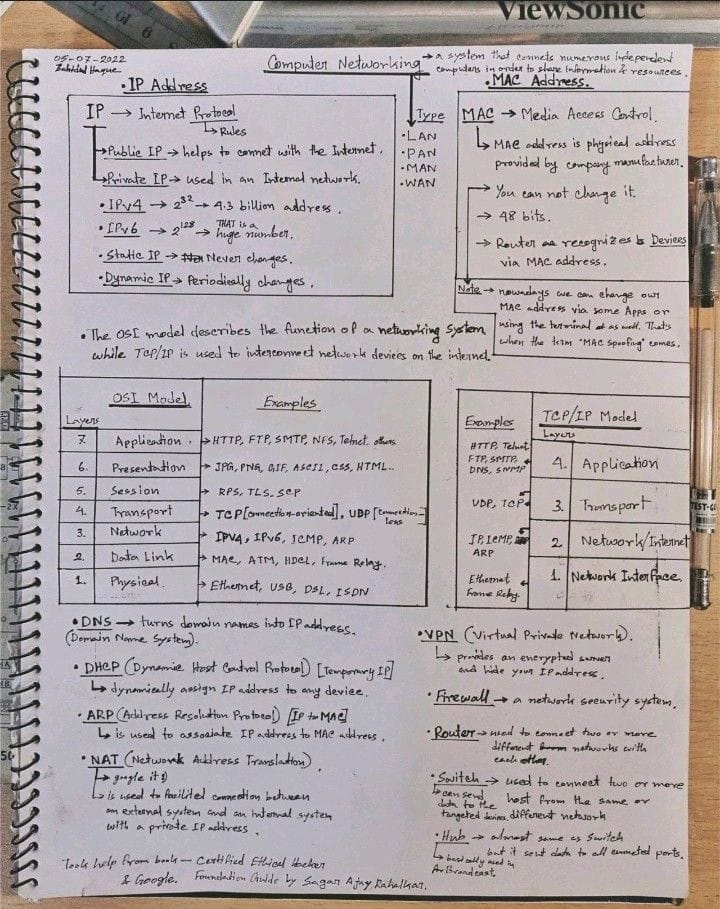 ViewSonic
05-07-2022
Computer Networking → a system that connets numerous independent
computers in order to share information & resources.
• IP Address
IP → Internet Protocol
↳ Rules
→ Public IP → helps to connet with the Internet.
→ Private IP → used in an Internal network.
• IPv4 → 2^32 → 4.3 billion address.
• IPv6 → 2^128 → THAT is a
huge number.
• Static IP → Never changes.
• Dynamic IP → Periodically changes.
Type
• LAN
• PAN
• MAN
• WAN
• MAC Address.
MAC → Media Access Control.
↳ MAC address is physical address
provided by company manufacturer.
→ You can not change it.
→ 48 bits.
→ Router recognizes Devices
via MAC address.
Note → nowadays we can change our
MAC address via some Apps or
using the terminal as well. That's
when the term "MAC spoofing" comes.
• The OSI model describes the function of a networking system
while TCP/IP is used to interconnect network devices on the internet.
OSI Model Examples
Layers
7. Application. → HTTP, FTP, SMTP, NFS, Telnet, others
6. Presentation → JPG, PNG, GIF, ASCII, CSS, HTML..
5. Session → RPS, TLS, SCP
4. Transport → TCP [connection-oriented], UDP [connection-
less
3. Network → IPV4, IPV6, ICMP, ARP
2. Data Link → MAC, ATM, HDCL, Frame Relay.
1. Physical. → Ethernet, USB, DSL, ISDN
Examples TCP/IP Model
Layers
HTTP, Telnet
FTP, SMTP,
DNS, SNMP
4. Application
UDP, TCP
3. Transport
IP, ICMP,
ARP
2 Network/Internet
Ethernet
Frame Relay.
1. Network Interface.
• DNS → turns domain names into IP address.
(Domain Name System).
• DHCP (Dynamic Host Control Protocol) [Temporary IP]
↳ dynamically assign IP address to any device.
• ARP (Address Resolution Protocol) [IP to MAC]
↳ is used to associate IP address to MAC address.
• NAT (Network Address Translation).
→ google it :)
↳ is used to facilited connection between
an external system and an internal system
with a private IP address.
• VPN (Virtual Private Network).
↳ provides an encrypted server
and hide your IP address.
• Firewall → a network security system.
• Router → used to connect two or more
different networks with
each other.
• Switch → used to connect two or more
host from the same or
different network
↳ can send
data to the
targeted devices.
• Hub → almost same as Switch
but it sent data to all connected ports.
↳ basically used in
Av Broadcast.
Took help from book - Certified Ethical Hacker
& Google. Foundation Guide by Sagar Ajay Rahalkar.
TEST-G